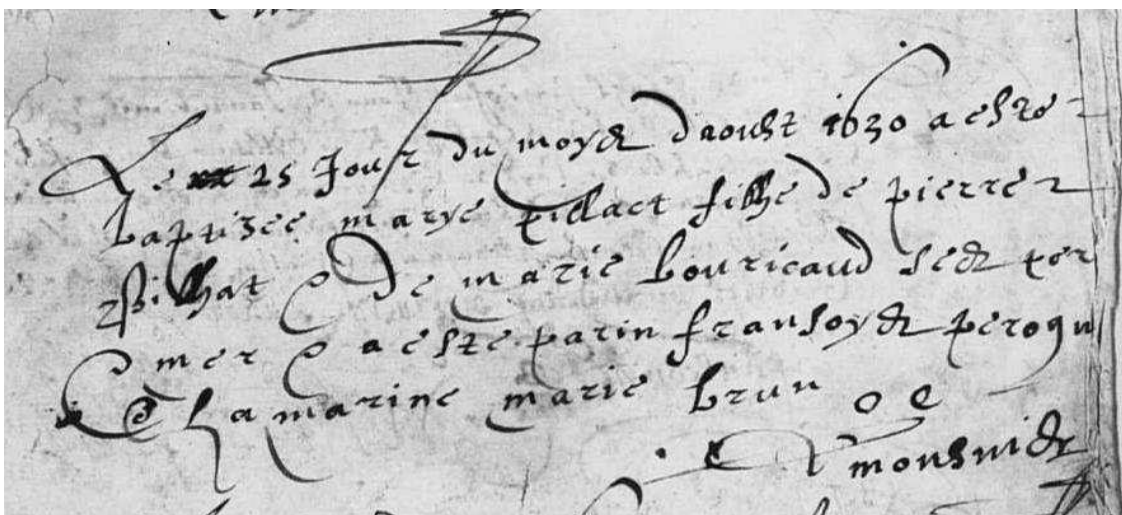 Le 25 Jour du moys daoust 1630 a este
baptizee marye pilhact filhe de pierre
pilhat & de marie bouricaud ses per
& mer & a este parin fransoys peroqu
& La marine marie brun